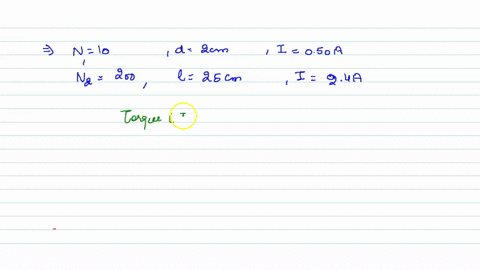 ⇒ N = 10 , d = 2cm , I = 0.50A
N₂ = 200 , l = 25cm , I = 2.4A
Torque